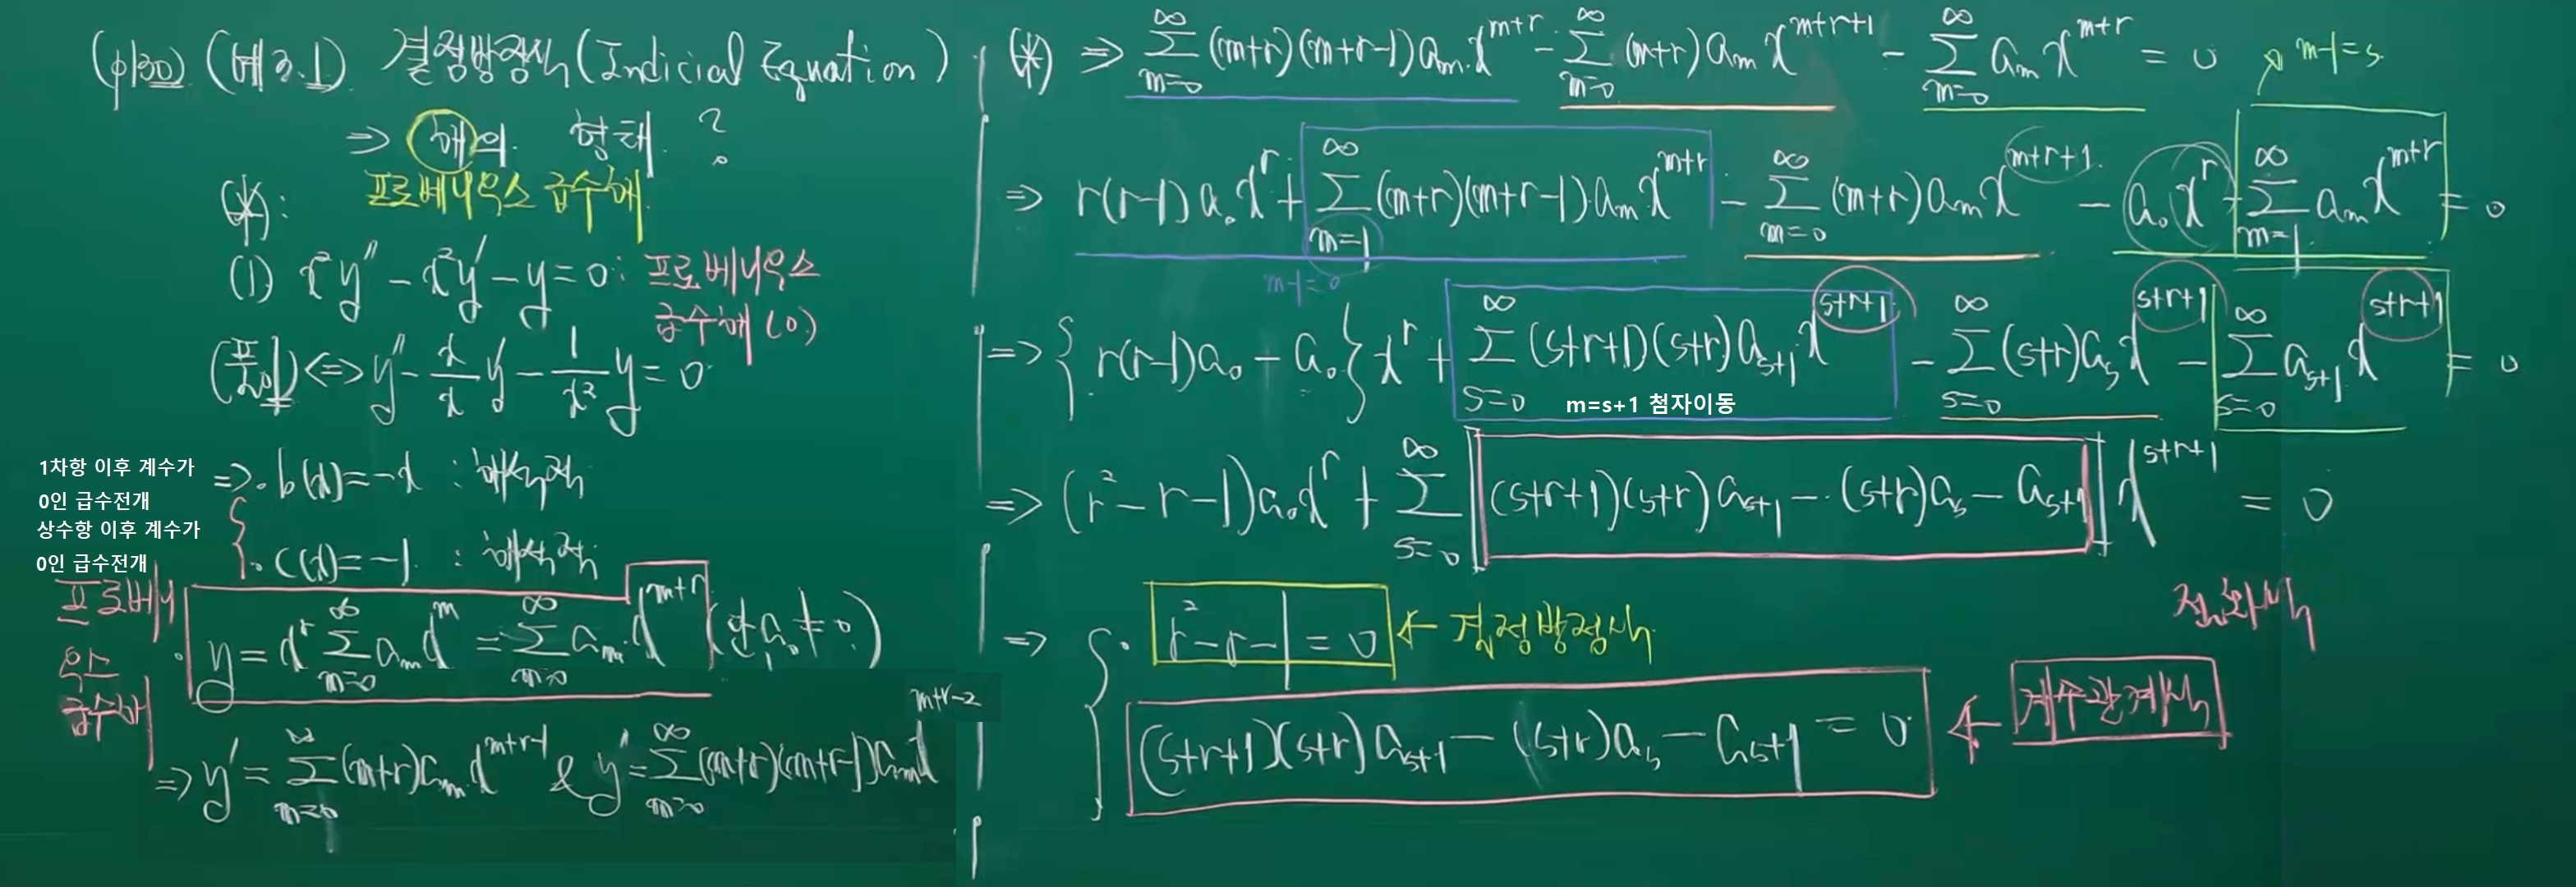 (p130) (예3.1) 결정방정식(Indicial Equation)
⇒ 해의 형태?
프로베니우스 급수해
(*):
(1) x²y″ − x²y′ − y = 0 : 프로베니우스
급수해 (0)
(표준형) ⇔ y″ − x/x y′ − 1/x² y = 0
1차항 이후 계수가
0인 급수전개
⇒ · b(x) = −x : 해석적
상수항 이후 계수가
0인 급수전개
· c(x) = −1 : 해석적
프로베니
우스
급수해
· y = x^r ∑_{m=0}^{∞} a_m x^m = ∑_{m=0}^{∞} a_m x^{m+r} (단 a₀ ≠ 0)
⇒ y′ = ∑_{m=0}^{∞} (m+r) a_m x^{m+r−1} & y″ = ∑_{m=0}^{∞} (m+r)(m+r−1) a_m x^{m+r−2}
(*) ⇒ ∑_{m=0}^{∞} (m+r)(m+r−1) a_m x^{m+r} − ∑_{m=0}^{∞} (m+r) a_m x^{m+r+1} − ∑_{m=0}^{∞} a_m x^{m+r} = 0
m−1=s
⇒ r(r−1) a₀ x^r + ∑_{m=1}^{∞} (m+r)(m+r−1) a_m x^{m+r} − ∑_{m=0}^{∞} (m+r) a_m x^{m+r+1} − a₀ x^r − ∑_{m=1}^{∞} a_m x^{m+r} = 0
m−1=0
⇒ { r(r−1) a₀ − a₀ } x^r + ∑_{s=0}^{∞} (s+r+1)(s+r) a_{s+1} x^{s+r+1} − ∑_{s=0}^{∞} (s+r) a_s x^{s+r+1} − ∑_{s=0}^{∞} a_{s+1} x^{s+r+1} = 0
m=s+1 첨자이동
⇒ (r² − r − 1) a₀ x^r + ∑_{s=0}^{∞} [(s+r+1)(s+r) a_{s+1} − (s+r) a_s − a_{s+1}] x^{s+r+1} = 0
⇒ { · r² − r − 1 = 0 ← 결정방정식
점화식
(s+r+1)(s+r) a_{s+1} − (s+r) a_s − a_{s+1} = 0 ← 계수관계식